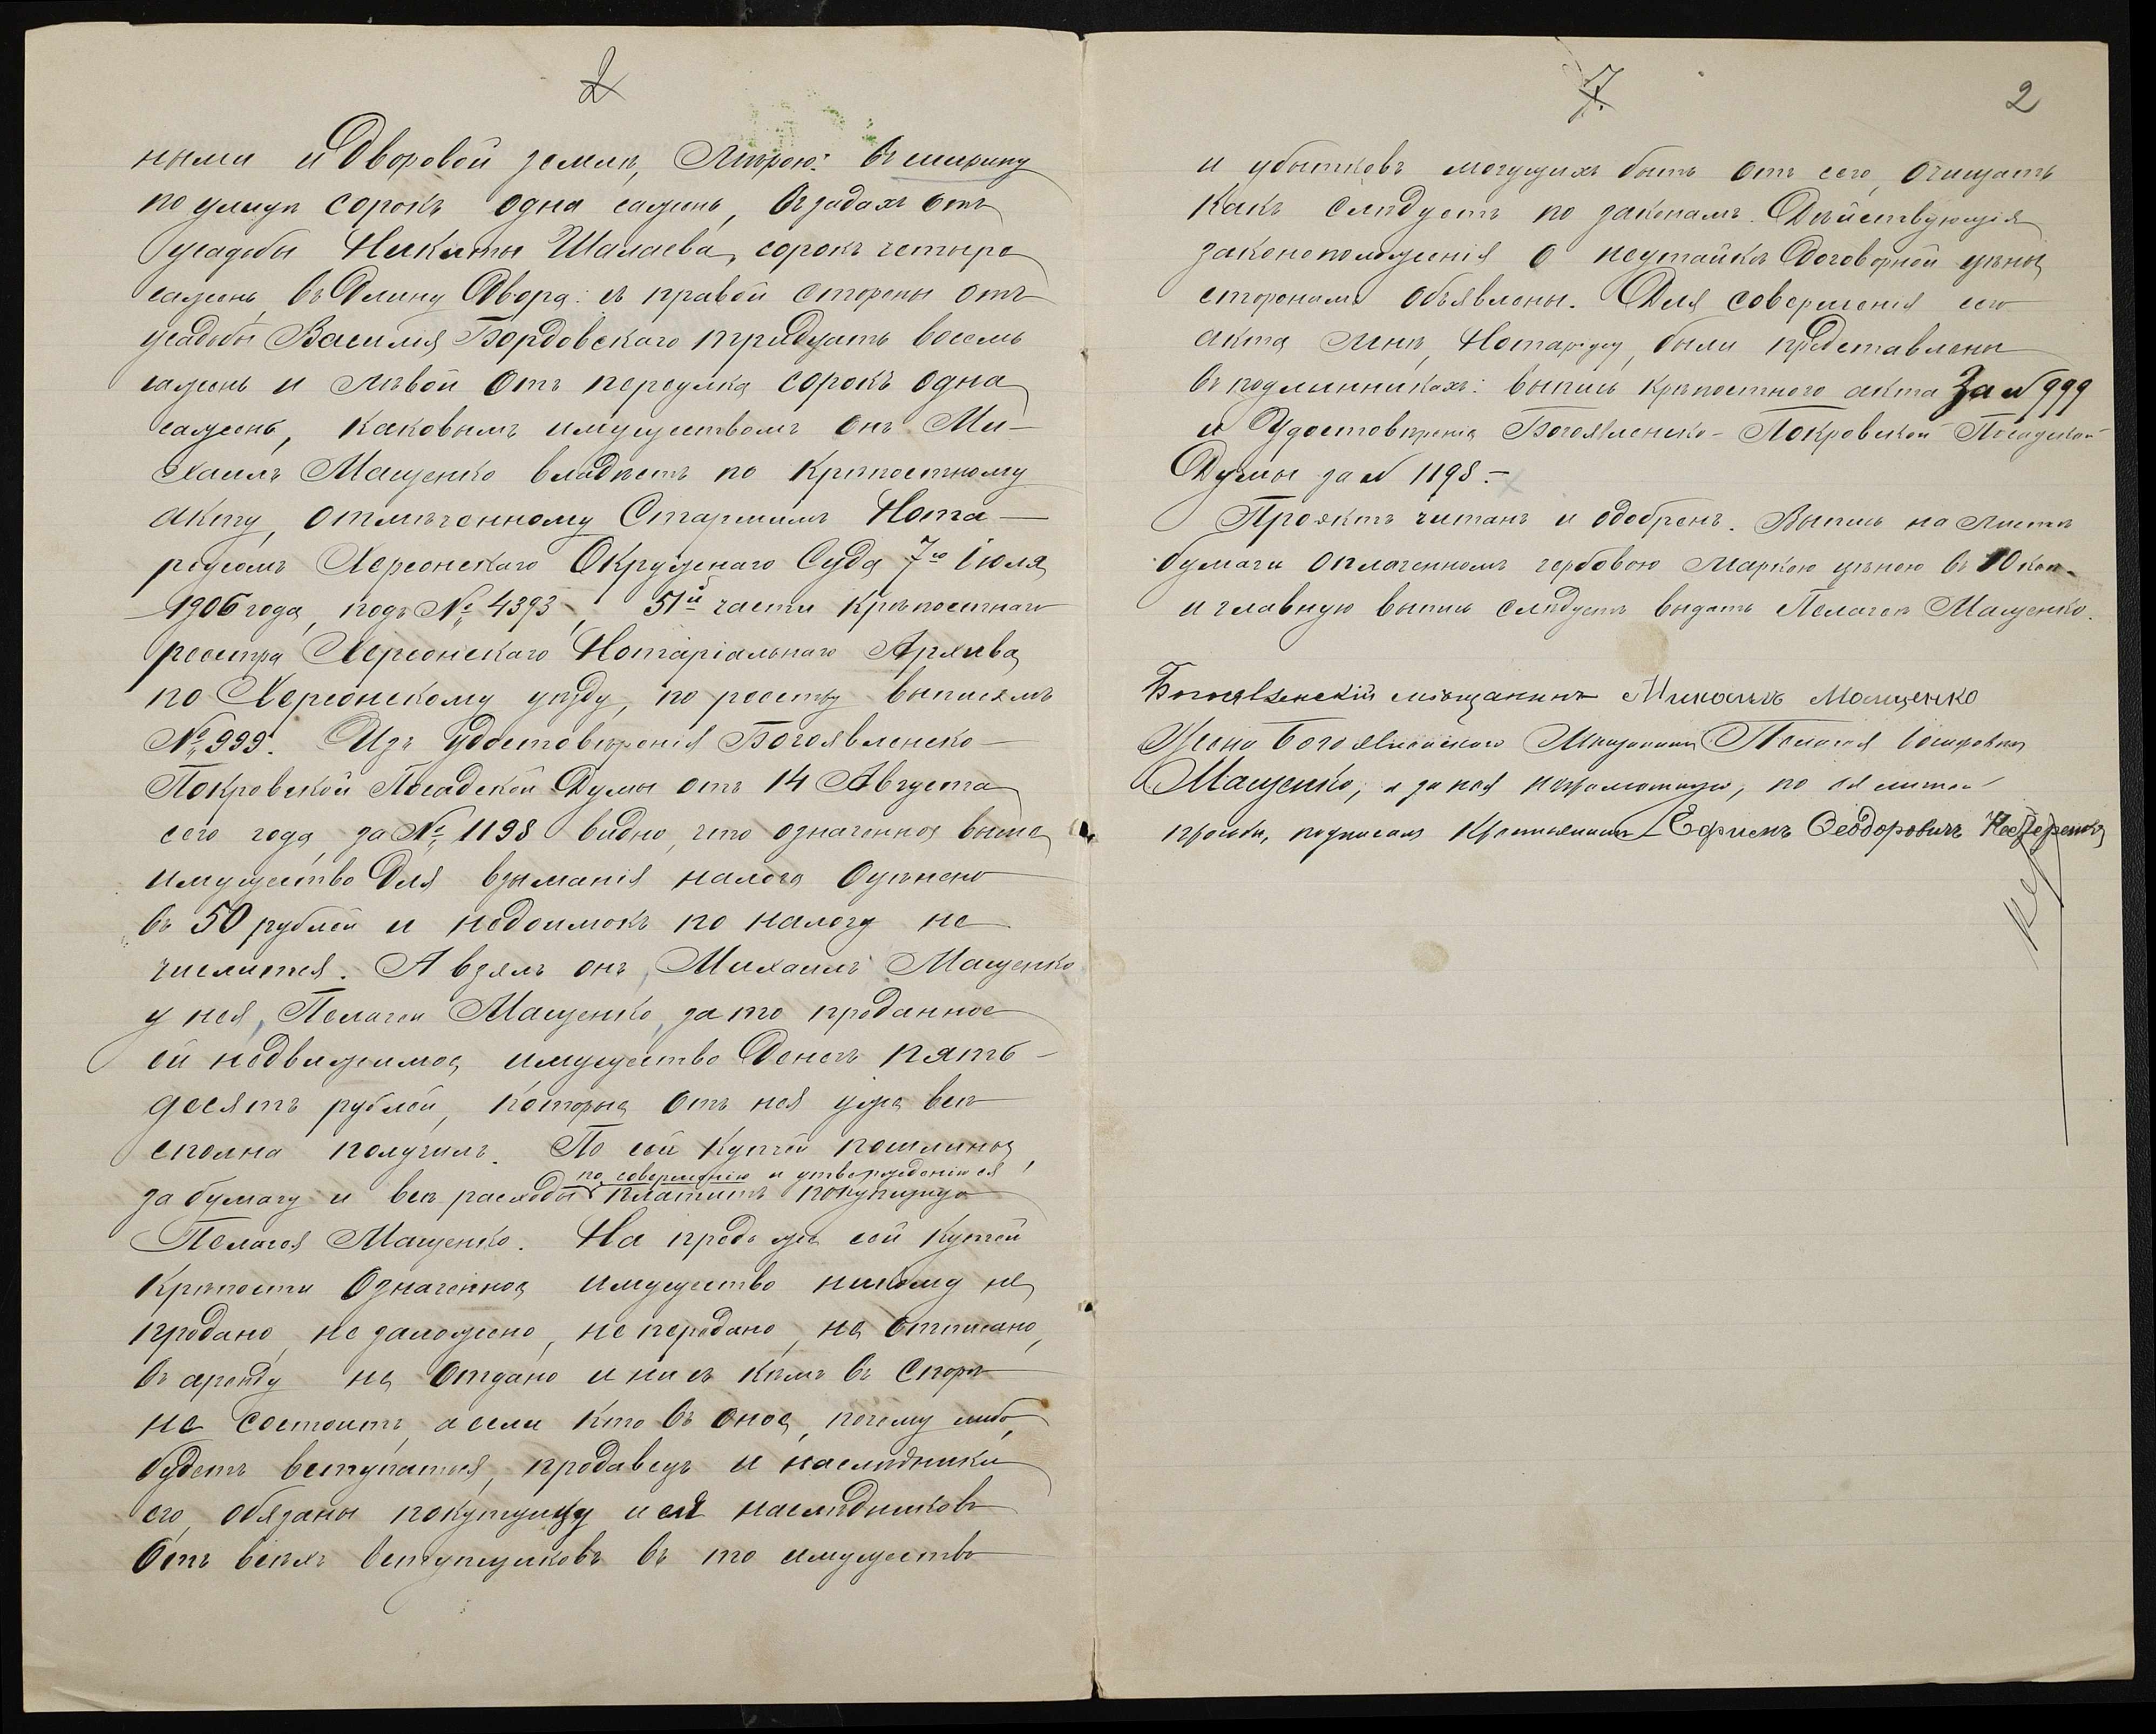 2
ными и дворовой земли, мѣрою: въ ширину
по улицѣ сорокъ одна сажень, въ задахъ отъ
усадьбы Никиты Шалаева, сорокъ четыре
сажень, въ длину двора: съ правой стороны отъ
усадьбы Василія Бордовскаго тридцать восемь
сажень и лѣвой отъ переулка сорокъ одна
сажень, каковымъ имуществомъ онъ Ми-
хаилъ Мащенко владѣетъ по крѣпостному
акту, отмѣченному Старшимъ Нота-
ріусомъ Херсонскаго Окружнаго Суда 7го Іюля
1906 года, подъ № 4393, 51й части крѣпостнаго
реестра Херсонскаго Нотаріальнаго Архива
по Херсонскому уѣзду, по реестру выписямъ
№ 999. Изъ удостовѣренія Богоявленско-
Покровской Посадской Думы отъ 14 Августа
сего года за № 1198 видно, что означенное выше
имущество для взыманія налога оцѣнено
въ 50 рублей и недоимокъ по налогу не
числится. А взялъ онъ, Михаилъ Мащенко
у нея, Пелагеи Мащенко, за то проданное
ей недвижимое имущество денегъ пять-
десятъ рублей, которые отъ нея уже всѣ
сполна получилъ. По сей купчей пошлины,
по совершенію и утвержденію ея
за бумагу и всѣ расходы платитъ покупщица
Пелагея Мащенко. На предь же сей купчей
крѣпости означенное имущество никому не
продано, не заложено, не передано, не отписано,
въ аренду не отдано и ни съ кѣмъ въ спорѣ
не состоитъ, а если кто въ оное, почему либо,
будетъ вступаться, продавецъ и наслѣдники
его, обязаны покупщицу и ея наслѣдниковъ
отъ всѣхъ вступщиковъ въ то имущество
7.
2
и убытковъ могущихъ быть отъ сего, очищать
какъ слѣдуетъ по законамъ. Дѣйствующія
законоположенія о неутайкѣ договорной цѣны
сторонамъ объявлены. Для совершенія сего
акта мнѣ, Нотаріусу, были представлены
въ подлинникахъ: выпись крѣпостного акта за № 999
и Удостовѣреніе Богоявленско-Покровской Посадской
Думы за № 1198.-
Проэктъ читанъ и одобренъ. Выпись на листѣ
бумаги оплаченномъ гербовою маркою цѣною въ 10 коп.
и главную выпись слѣдуетъ выдать Пелагеѣ Мащенко.
Богоявленскій мѣщанинъ Михаилъ Мащенко
Жена Богоявленскаго Мѣщанина Пелагея Іосифовна
Мащенко, а за нея неграмотную, по ея личной
просьбѣ, подписалъ Крестьянинъ Ефимъ Ѳеодоровичъ Нестеренко